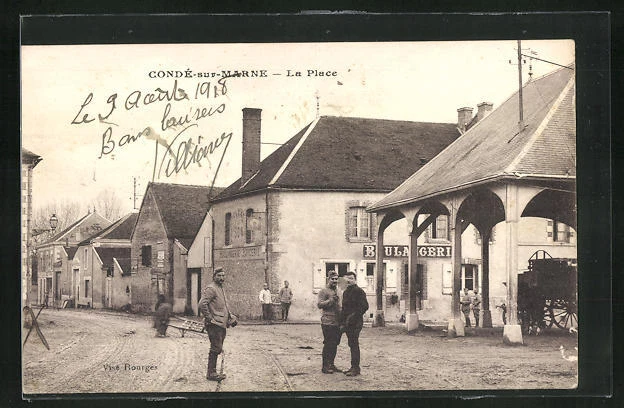 CONDÉ-sur-MARNE — La Place
Le 9 Août 1918
Bons baisers
BOULANGERIE
Visé Bourges